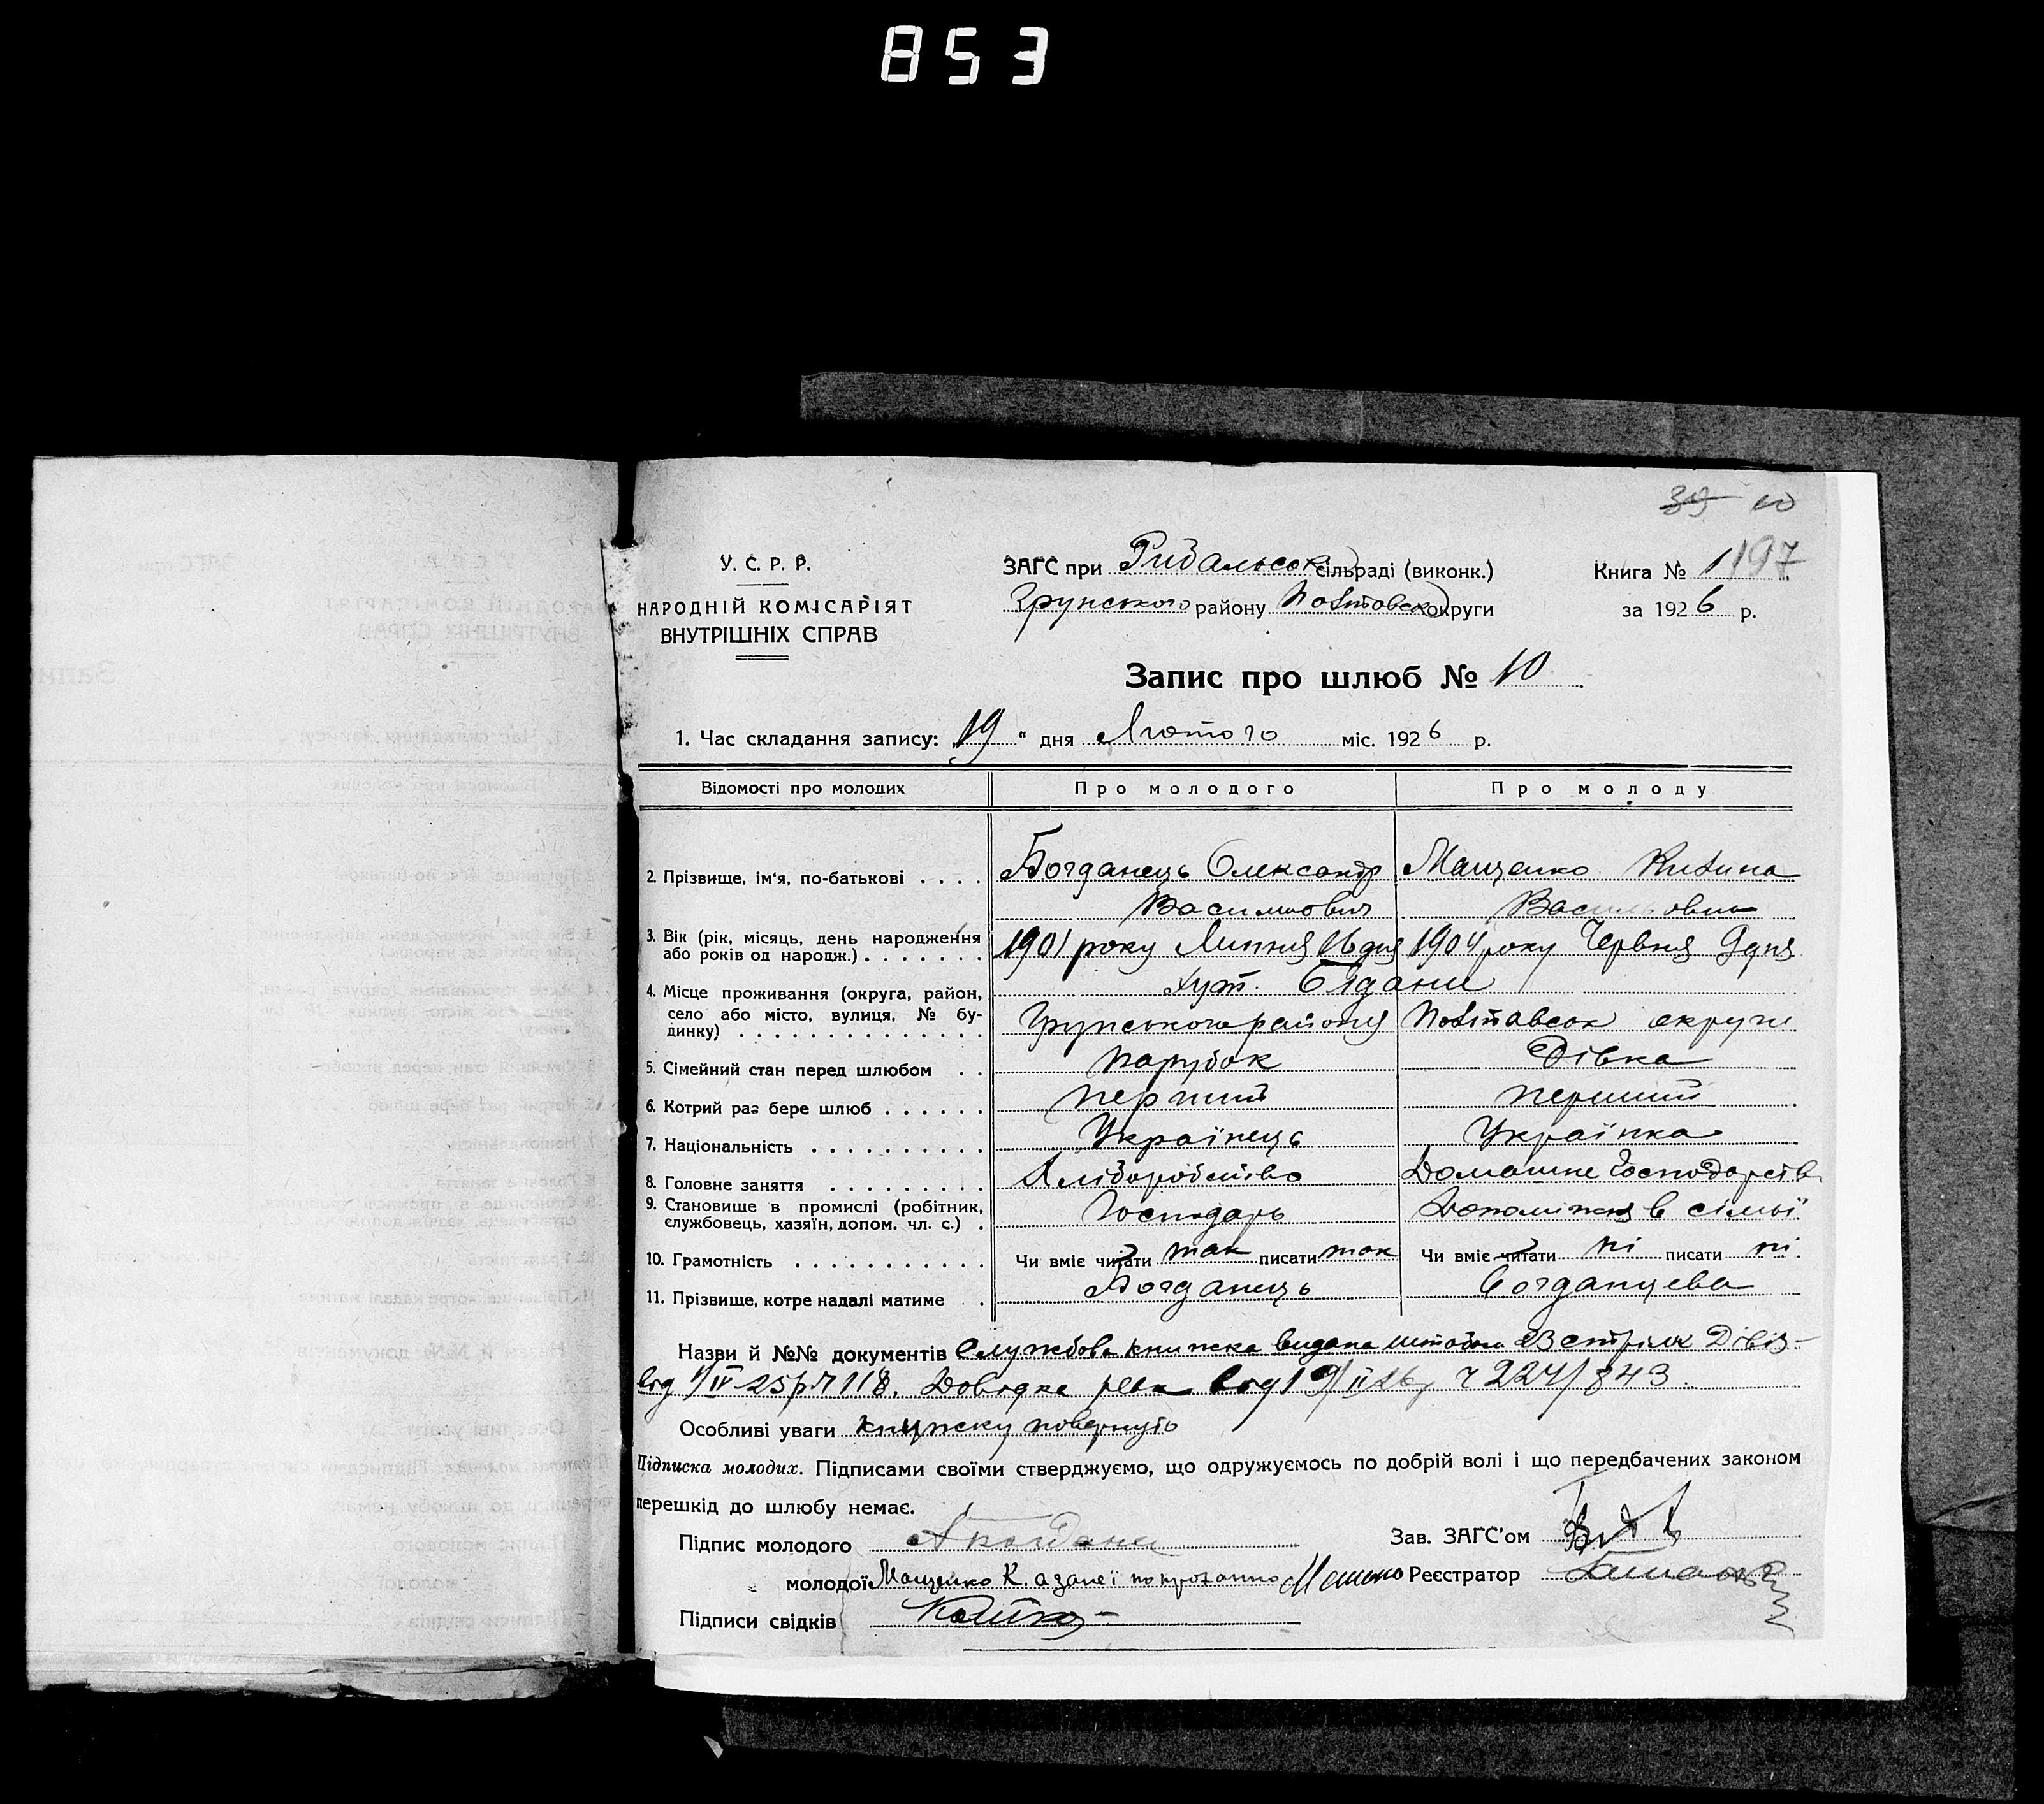 853
39 10
У. С. Р. Р.
НАРОДНІЙ КОМІСАРІЯТ
ВНУТРІШНІХ СПРАВ
ЗАГС при Рибальськ сільраді (виконк.)
Грунського району Полтавськ округи
Книга № 1 197
за 1926 р.
Запис про шлюб № 10
1. Час складання запису: „19“ дня Лютого міс. 1926 р.
Відомості про молодих Про молодого Про молоду
2. Прізвище, ім'я, по-батькові . . . . Богданець Олександр Мащенко Килина
Васильович Васильовна
3. Вік (рік, місяць, день народження або років од народж.) . . . . . . . 1901 року Липня 16 дня 1904 року Червня 9 дня
4. Місце проживання (округа, район, село або місто, вулиця, № будинку) . . . . . . . . . . . . . . хут. Бідани
Грунського району Полтавськ округи
5. Сімейний стан перед шлюбом . . Парубок Дівка
6. Котрий раз бере шлюб . . . . . . перший перший
7. Національність . . . . . . . . . . Українець Українка
8. Головне заняття . . . . . . . . . Хліборобство Домашнє Господарств
9. Становище в промислі (робітник, службовець, хазяїн, допом. чл. с.) . Господарь Допоміжня в сімьї
10. Грамотність . . . . . . . . . . . Чи вміє читати так писати так Чи вміє читати ні писати ні.
11. Прізвище, котре надалі матиме . Богданець Богданцева
Назви й №№ документів Службова книжка видана штабом 23 стрілк Дівіз-
від 1/IV-25р № 118. Довідка від 19/II 26р ч 224/843.
Особливі уваги книжку повернуть
Підписка молодих. Підписами своїми стверджуємо, що одружуємось по добрій волі і що передбачених законом
перешкід до шлюбу немає.
Підпис молодого А Богдане
Зав. ЗАГС'ом
молодої Мащенко К. а за неї по проханню Реєстратор
Підписи свідків